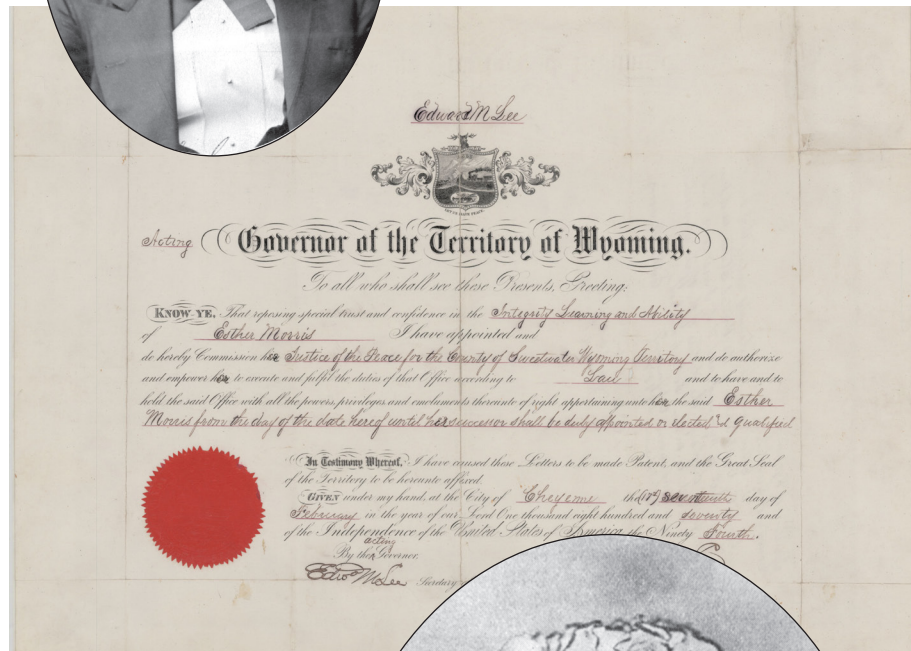 Edward M Lee
Acting Governor of the Territory of Wyoming.
To all who shall see these Presents, Greeting:
KNOW YE, That reposing special trust and confidence in the Integrity Learning and Ability
of Esther Morris I have appointed and
do hereby Commission her Justice of the Peace for the County of Sweetwater Wyoming Territory and do authorize
and empower her to execute and fulfil the duties of that Office according to Law and to have and to
hold the said Office with all the powers, privileges and emoluments thereunto of right appertaining unto her the said Esther
Morris from the day of the date hereof until her successor shall be duly appointed or elected & qualified
In Testimony Whereof, I have caused these Letters to be made Patent, and the Great Seal
of the Territory to be hereunto affixed.
GIVEN under my hand, at the City of Cheyenne the (17th) seventeenth day of
February in the year of our Lord One thousand eight hundred and seventy and
of the Independence of the United States of America the Ninety Fourth.
By the acting Governor.
Edwd M Lee Secretary